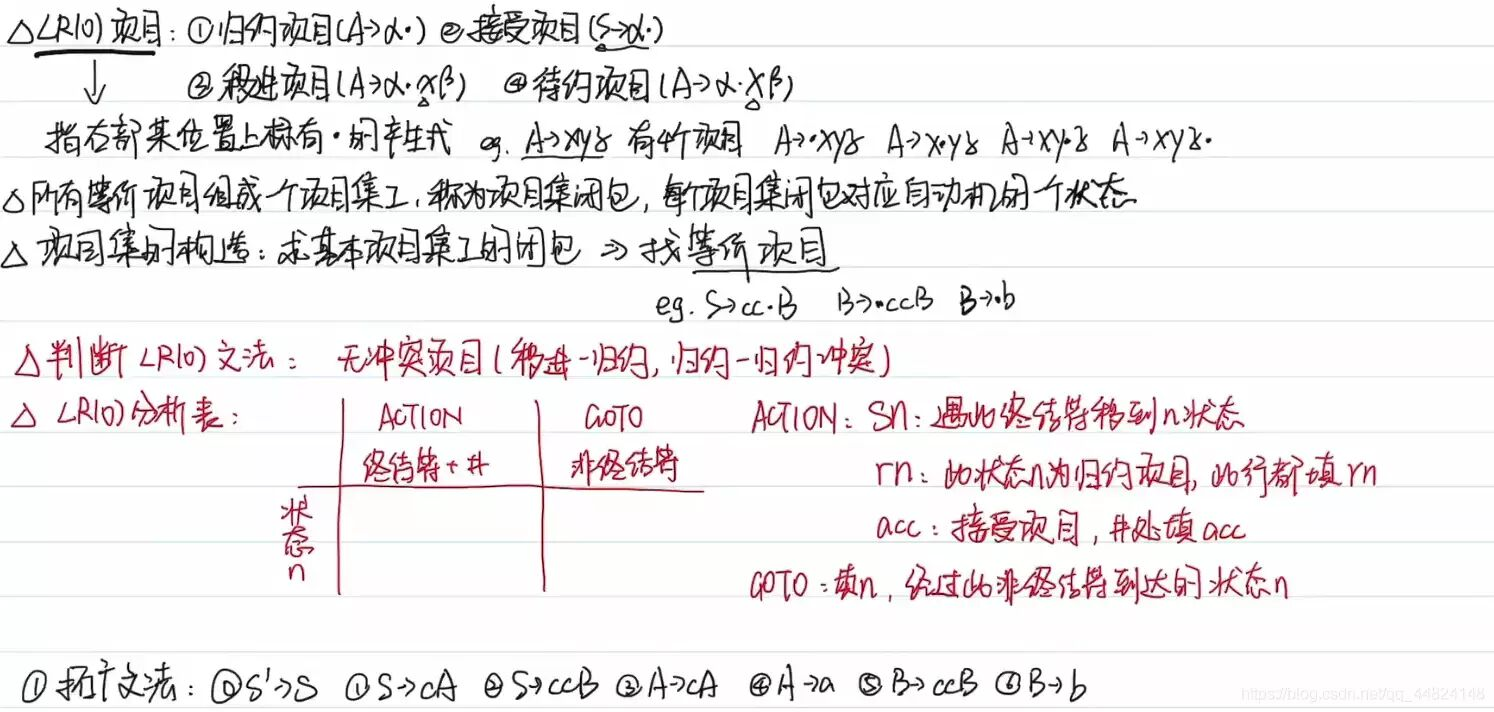 △LR(0)项目：①归约项目(A→α·) ②接受项目(S→α·)
③移进项目(A→α·xβ) ④待约项目(A→α·Xβ)
指右部某位置上标有·的产生式 eg. A→xyz 有4个项目 A→·xyz A→x·yz A→xy·z A→xyz·
△所有等价项目组成一个项目集I，称为项目集闭包，每个项目集闭包对应自动机的一个状态
△项目集的构造：求基本项目集I的闭包 ⇒ 找等价项目
eg. S→cc·B B→·ccB B→·b
△判断LR(0)文法： 无冲突项目(移进-归约，归约-归约冲突)
△LR(0)分析表：
ACTION GOTO
终结符+# 非终结符
状态n
ACTION：Sn：遇此终结符移到n状态
rn：此状态n为归约项目，此行都填rn
acc：接受项目，#处填acc
GOTO：填n，经过此非终结符到达的状态n
①拓广文法：⓪S'→S ①S→cA ②S→ccB ③A→cA ④A→a ⑤B→ccB ⑥B→b
https://blog.csdn.net/qq_44824148